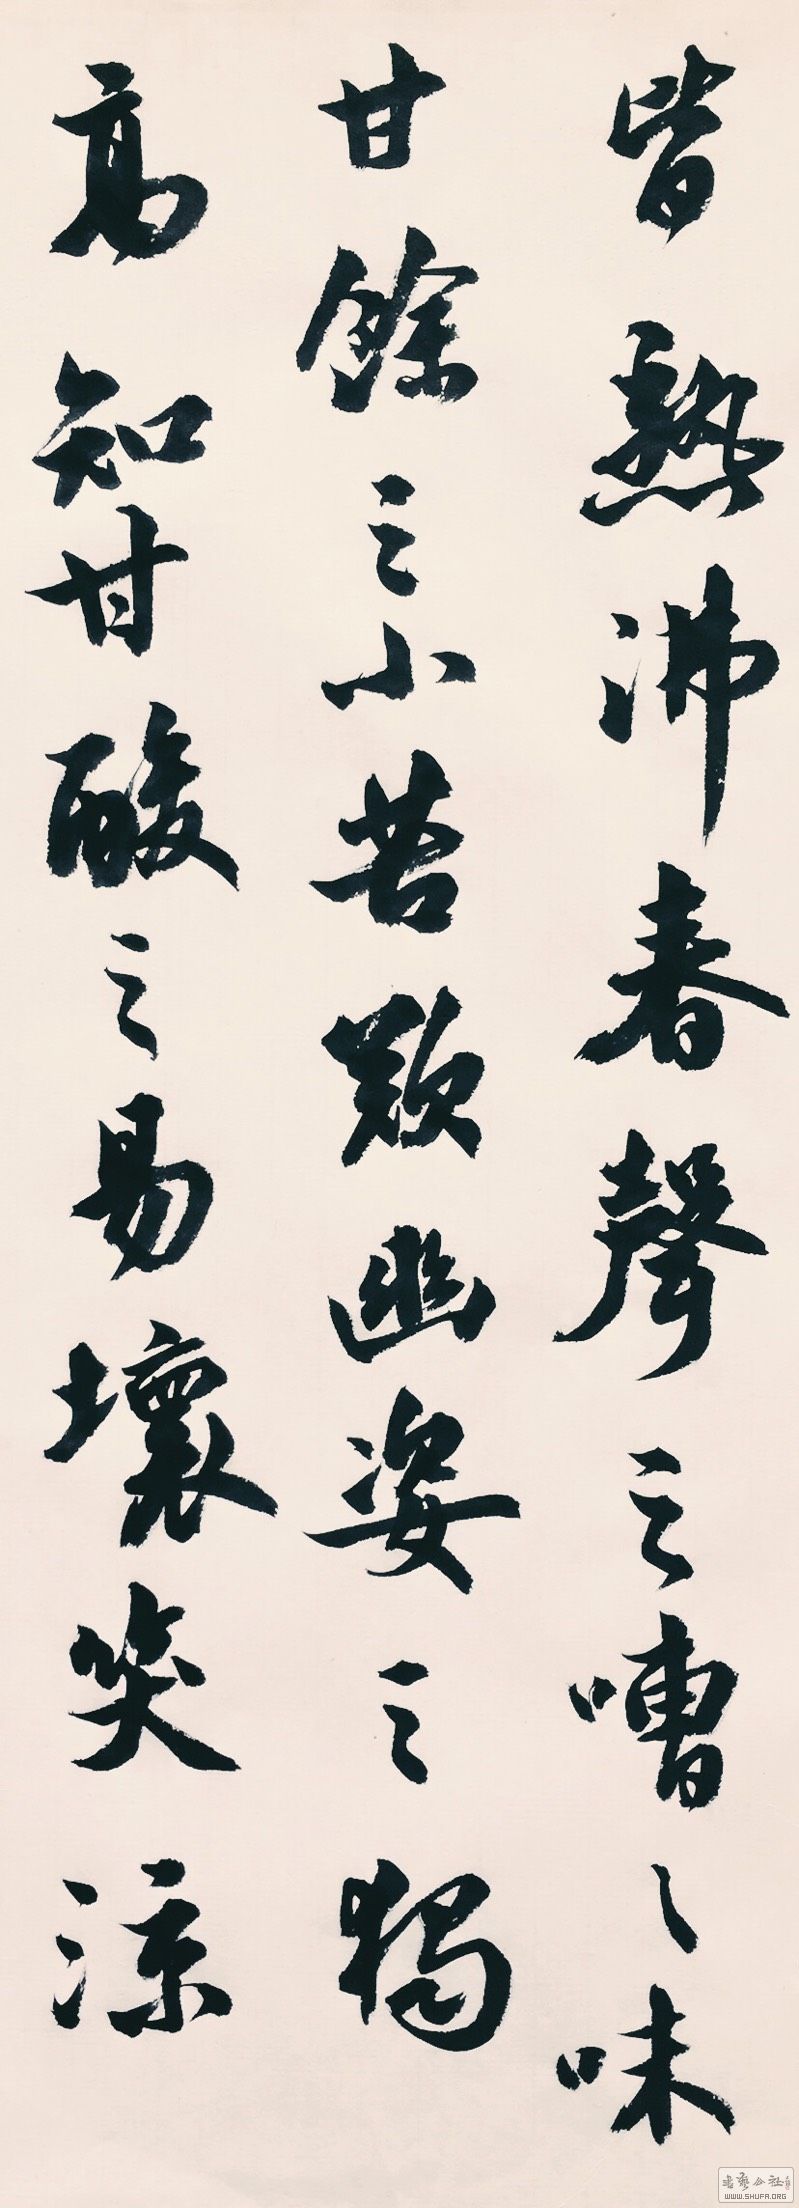 皆熟沸春聲之嘈々味
甘餘之小苦歎幽姿之獨
高知甘酸之易壞笑涼
書藝公社
WWW.SHUFA.ORG